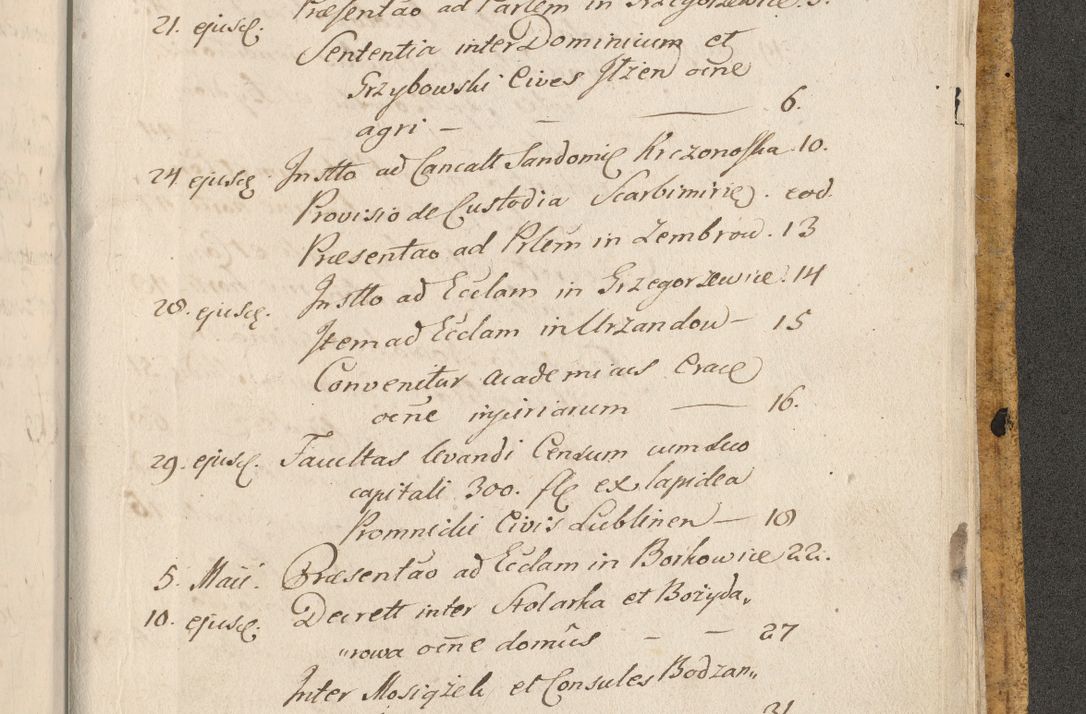 Præsentao ad Parlem in Grzegorzewice. 5.
21. ejusd. Sententia inter Dominium et
Grzybowski Cives Itzen oĉne
agri — — 6.
24 ejusd. Instto ad Cancalt Sandomie Krczonosska 10.
Provisio de Custodia Scarbimirie. eod.
Præsentao ad Prlem in Zembrow. 13
28. ejusd. Instto ad Ecclam in Grzegorzewice. 14
Item ad Ecclam in Urzandow — 15
Convenitur Academiacus Crace
ocne injuriarum — 16.
29. ejusd. Facultas levandi Censum cum suo
capitali 300. fl ex lapidea
Promnicki Civis Lublinen — 18
5. Maii. Præsentao ad Ecclam in Borkowice 22.
10. ejusd. Decrett inter Stolarka et Bożyda„
„rowa ocne domûs — — 27
Inter Mosiążek et Consules Bodzan„
31